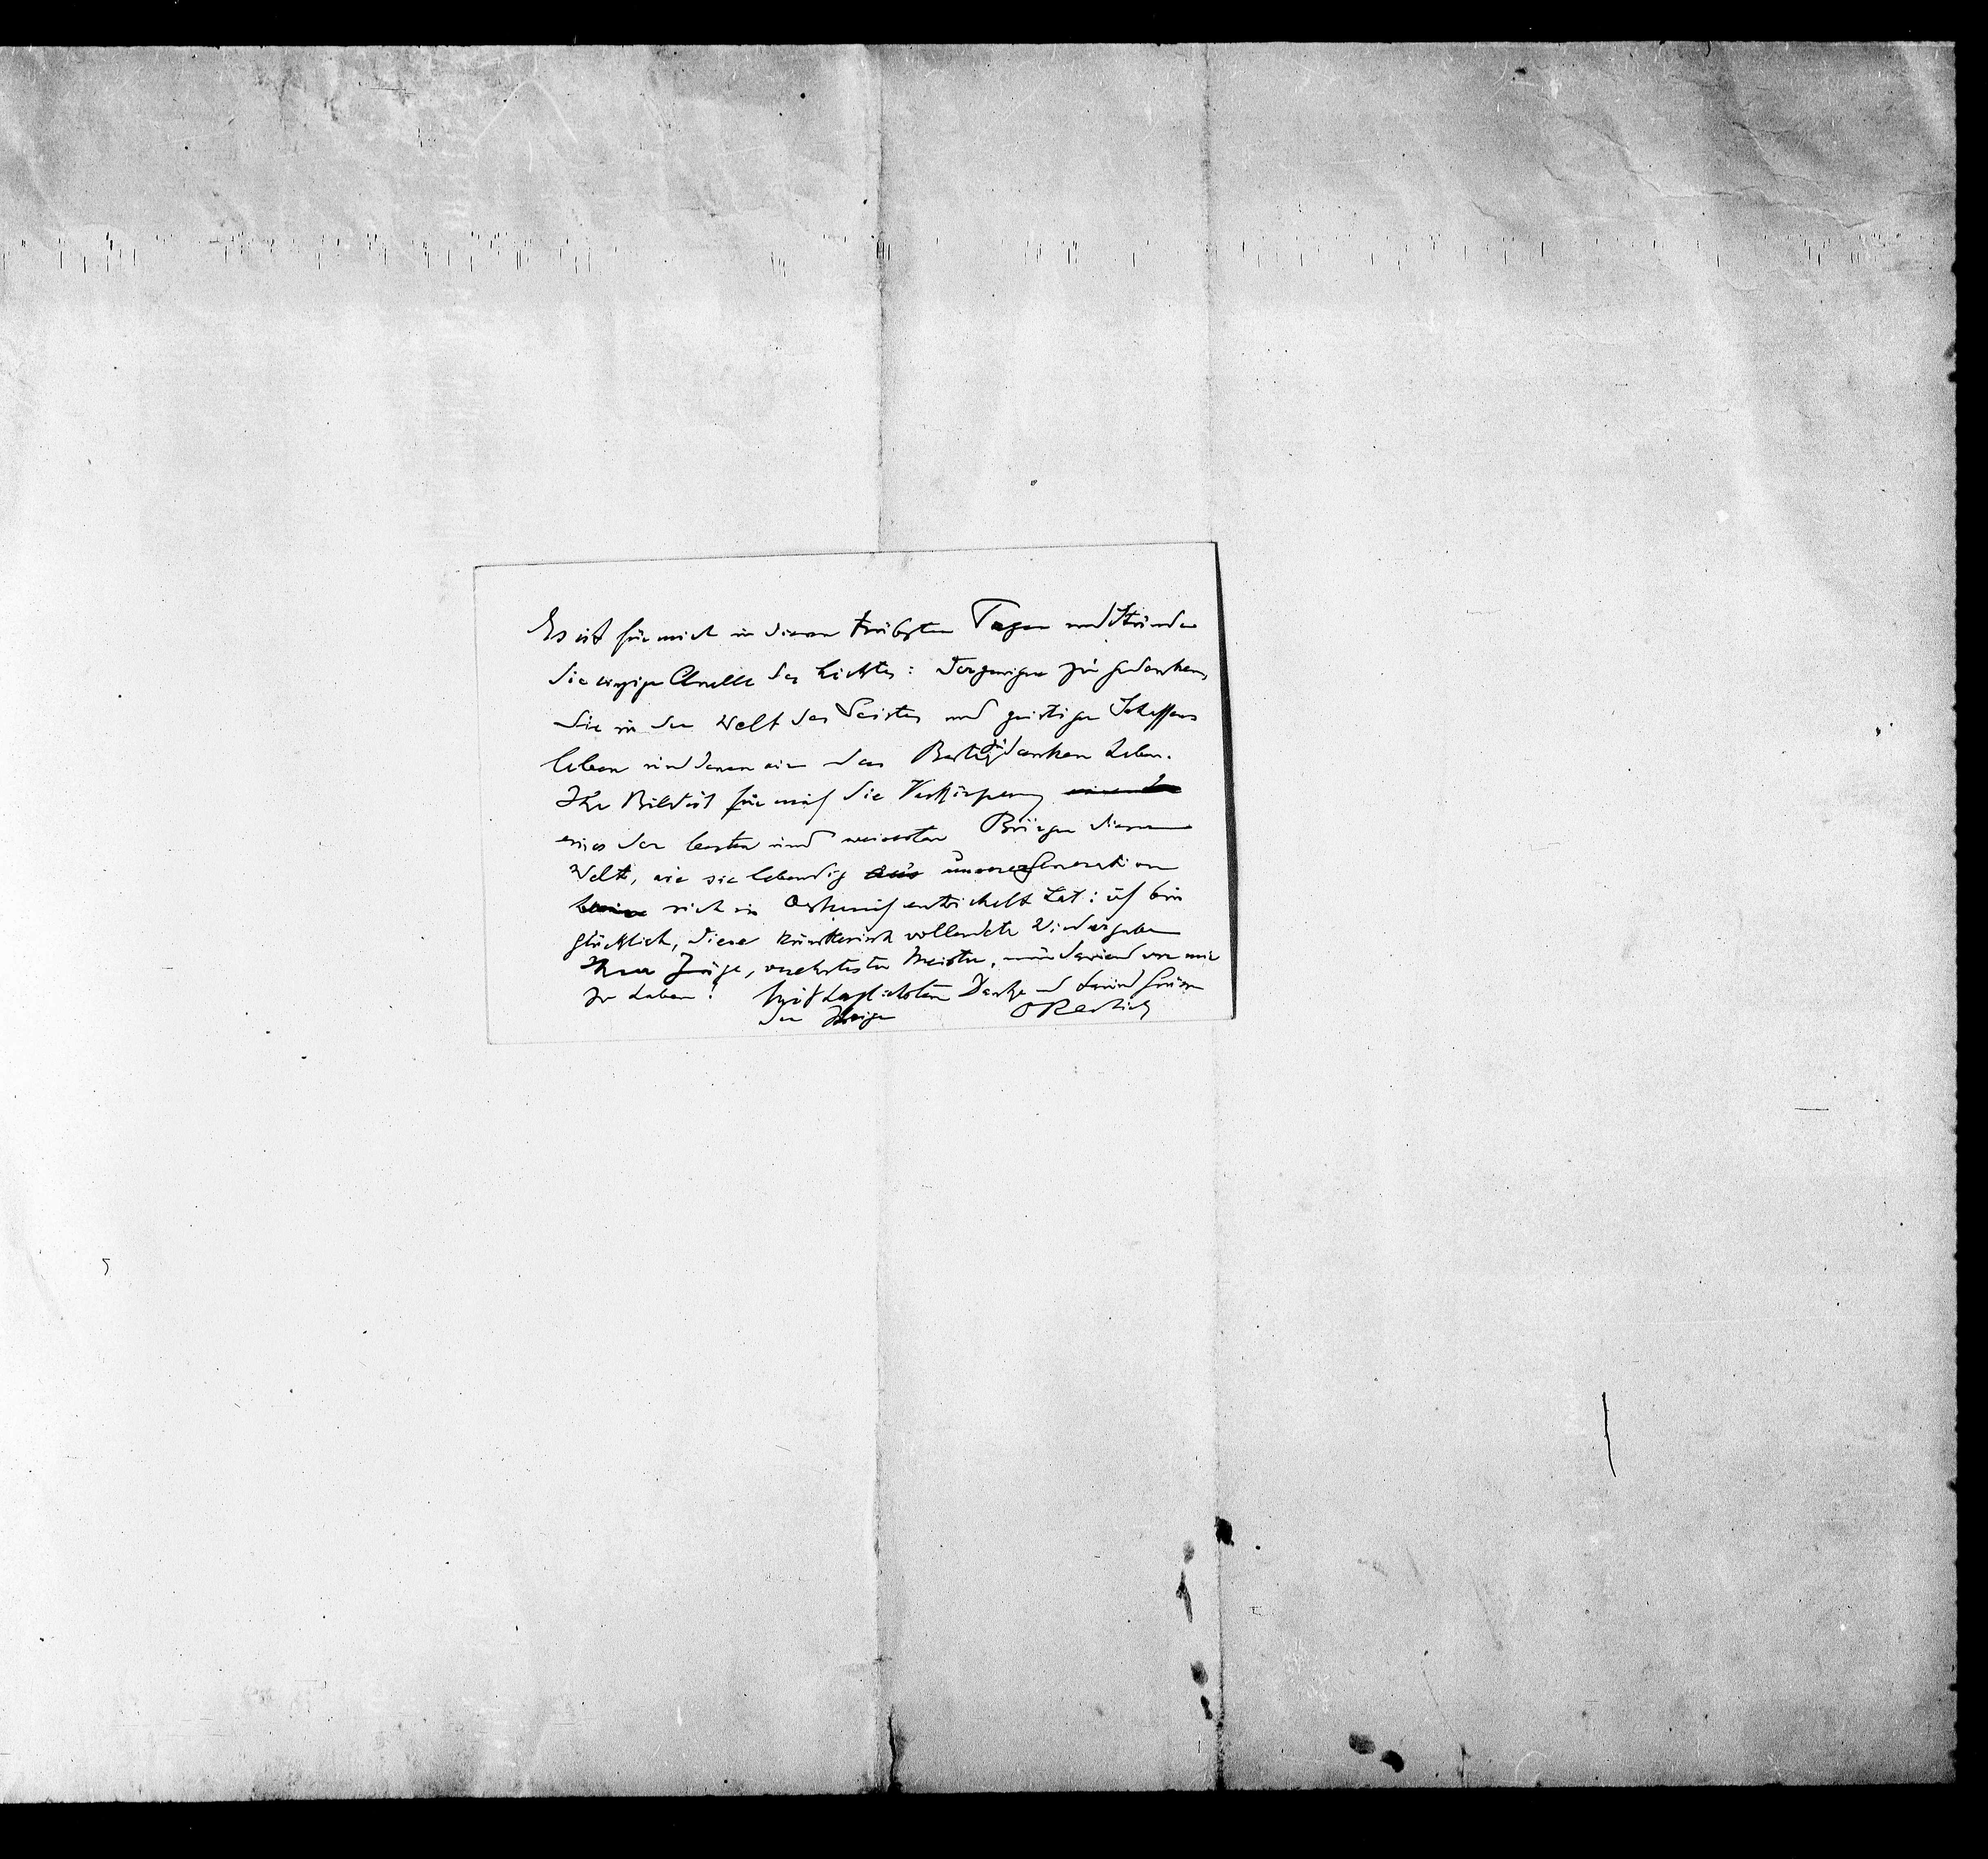 Es ist für mich in diesen trübsten Tagen und Stunden
die einzige Quelle des Lichtes: derjenigen zu gedenken,
die in der Welt des Geistes und geistigen Schaffens
leben und denen wir das Beste zu danken haben.
Ihr Bild ist für mich die Verkörperung
eines der besten und reinsten Bürger dieser
Welt, wie sie lebendig aus unserer Generation
sich in Oesterreich entwickelt hat: ich bin
glücklich, diese künstlerisch vollendete Wiedergabe
Ihrer Züge, verehrtester Meister, nun dauernd vor mir
zu haben! Mit herzlichstem Danke und Grüssen
der Ihrige Redlich